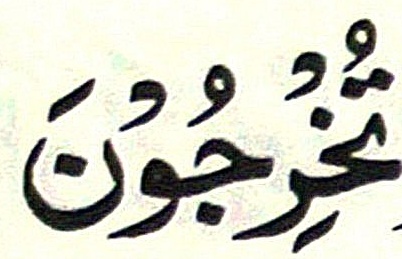 تُخْرِجُوْنَ